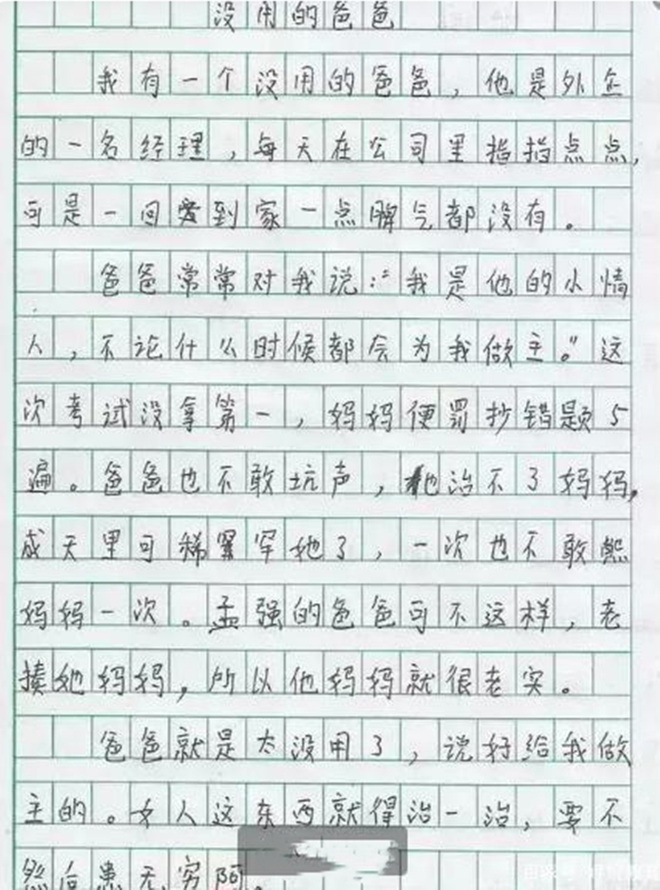 没用的爸爸
我有一个没用的爸爸，他是外企
的一名经理，每天在公司里指指点点，
可是一回到家一点脾气都没有。
爸爸常常对我说：“我是他的小情
人，不论什么时候都会为我做主。”这
次考试没拿第一，妈妈便罚抄错题5
遍。爸爸也不敢坑声，他治不了妈妈，
成天里可稀罕她了，一次也不敢熊
妈妈一次。孟强的爸爸可不这样，老
揍她妈妈，所以他妈妈就很老实。
爸爸就是太没用了，说好给我做
主的。女人这东西就得治一治，要不
然后患无穷阿。